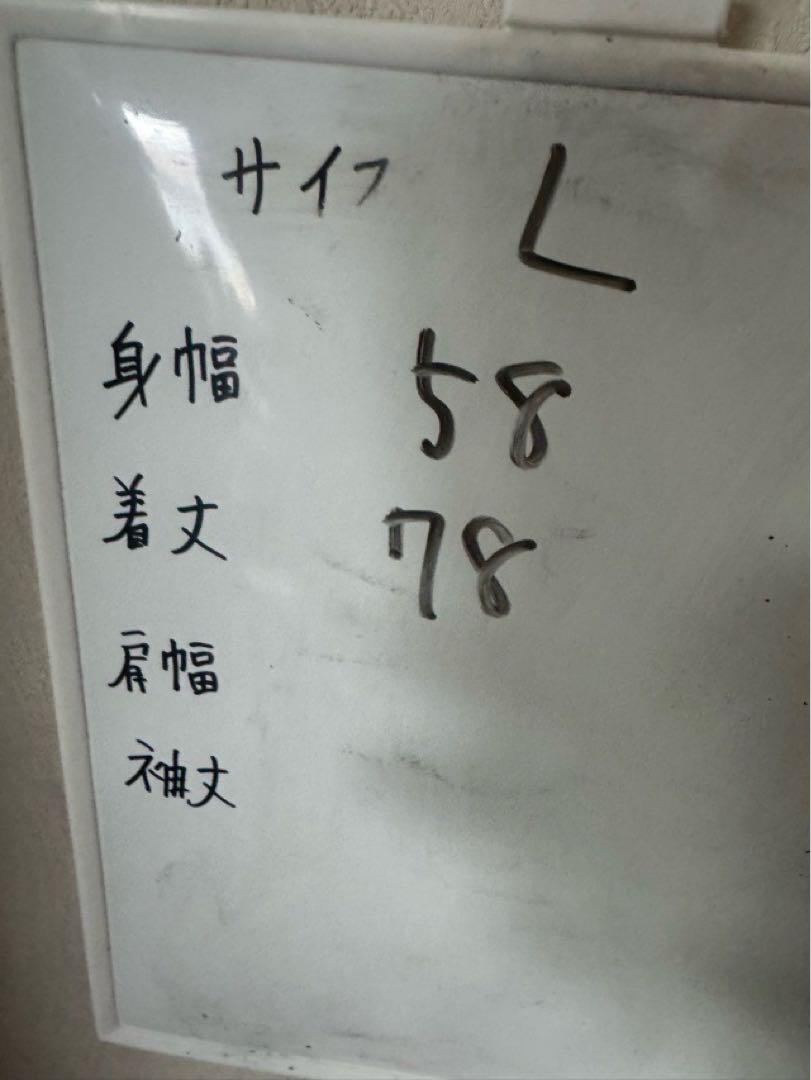 サイフ L
身幅 58
着丈 78
肩幅
袖丈